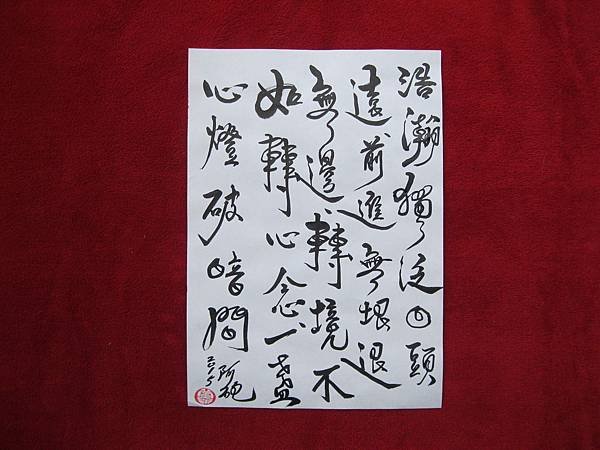 浩瀚獨泛回頭
遠前進無垠退
無邊轉境不
如轉心念一盞
心燈破暗間
阿